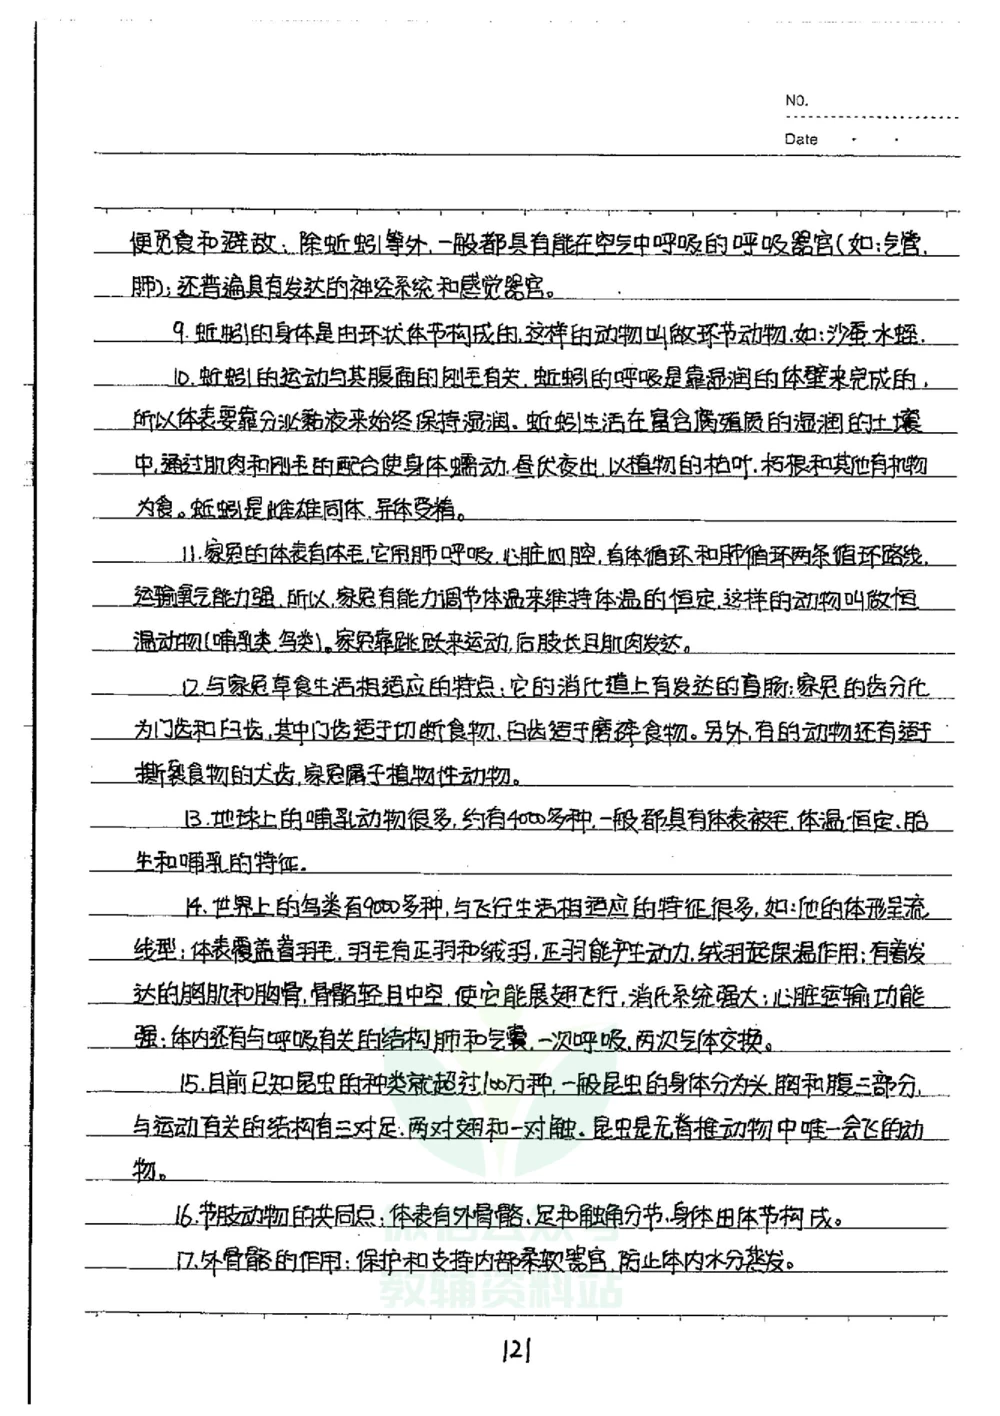 NO.
Date
便觅食和避敌；除蚯蚓等外,一般都具有能在空气中呼吸的呼吸器官(如:气管,
肺);还普遍具有发达的神经系统和感觉器官。
9.蚯蚓的身体是由环状体节构成的,这样的动物叫做环节动物.如:沙蚕.水蛭.
10.蚯蚓的运动与其腹面的刚毛有关.蚯蚓的呼吸是靠湿润的体壁来完成的,
所以体表要靠分泌黏液来始终保持湿润。蚯蚓生活在富含腐殖质的湿润的土壤
中,通过肌肉和刚毛的配合使身体蠕动.昼伏夜出,以植物的枯叶.朽根和其他有机物
为食。蚯蚓是雌雄同体.异体受精。
11.家兔的体表有体毛,它用肺呼吸.心脏四腔,有体循环和肺循环两条循环路线,
运输氧气能力强.所以,家兔有能力调节体温来维持体温的恒定.这样的动物叫做恒
温动物(哺乳类.鸟类)。家兔靠跳跃来运动,后肢长且肌肉发达。
12.与家兔草食生活相适应的特点:它的消化道上有发达的盲肠;家兔的齿分化
为门齿和臼齿,其中门齿适于切断食物,臼齿适于磨碎食物。另外,有的动物还有适于
撕裂食物的犬齿,家兔属于植物性动物。
13.地球上的哺乳动物很多,约有4000多种.一般都具有体表被毛.体温恒定.胎
生和哺乳的特征.
14.世界上的鸟类有9000多种,与飞行生活相适应的特征很多,如:他的体形呈流
线型;体表覆盖着羽毛,羽毛有正羽和绒羽,正羽能产生动力,绒羽起保温作用;有着发
达的胸肌和胸骨,骨骼轻且中空,使它能展翅飞行,消化系统强大;心脏运输功能
强;体内还有与呼吸有关的结构肺和气囊,一次呼吸,两次气体交换。
15.目前已知昆虫的种类就超过100万种,一般昆虫的身体分为头.胸和腹三部分,
与运动有关的结构有三对足.两对翅和一对触.昆虫是无脊椎动物中唯一会飞的动
物。
16.节肢动物的共同点:体表有外骨骼、足和触角分节.身体由体节构成。
17.外骨骼的作用:保护和支持内部柔软器官,防止体内水分蒸发。
微信公众号
教辅资料站
121